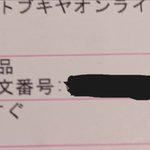 トブキヤオンライ
品
文番号:
すぐ